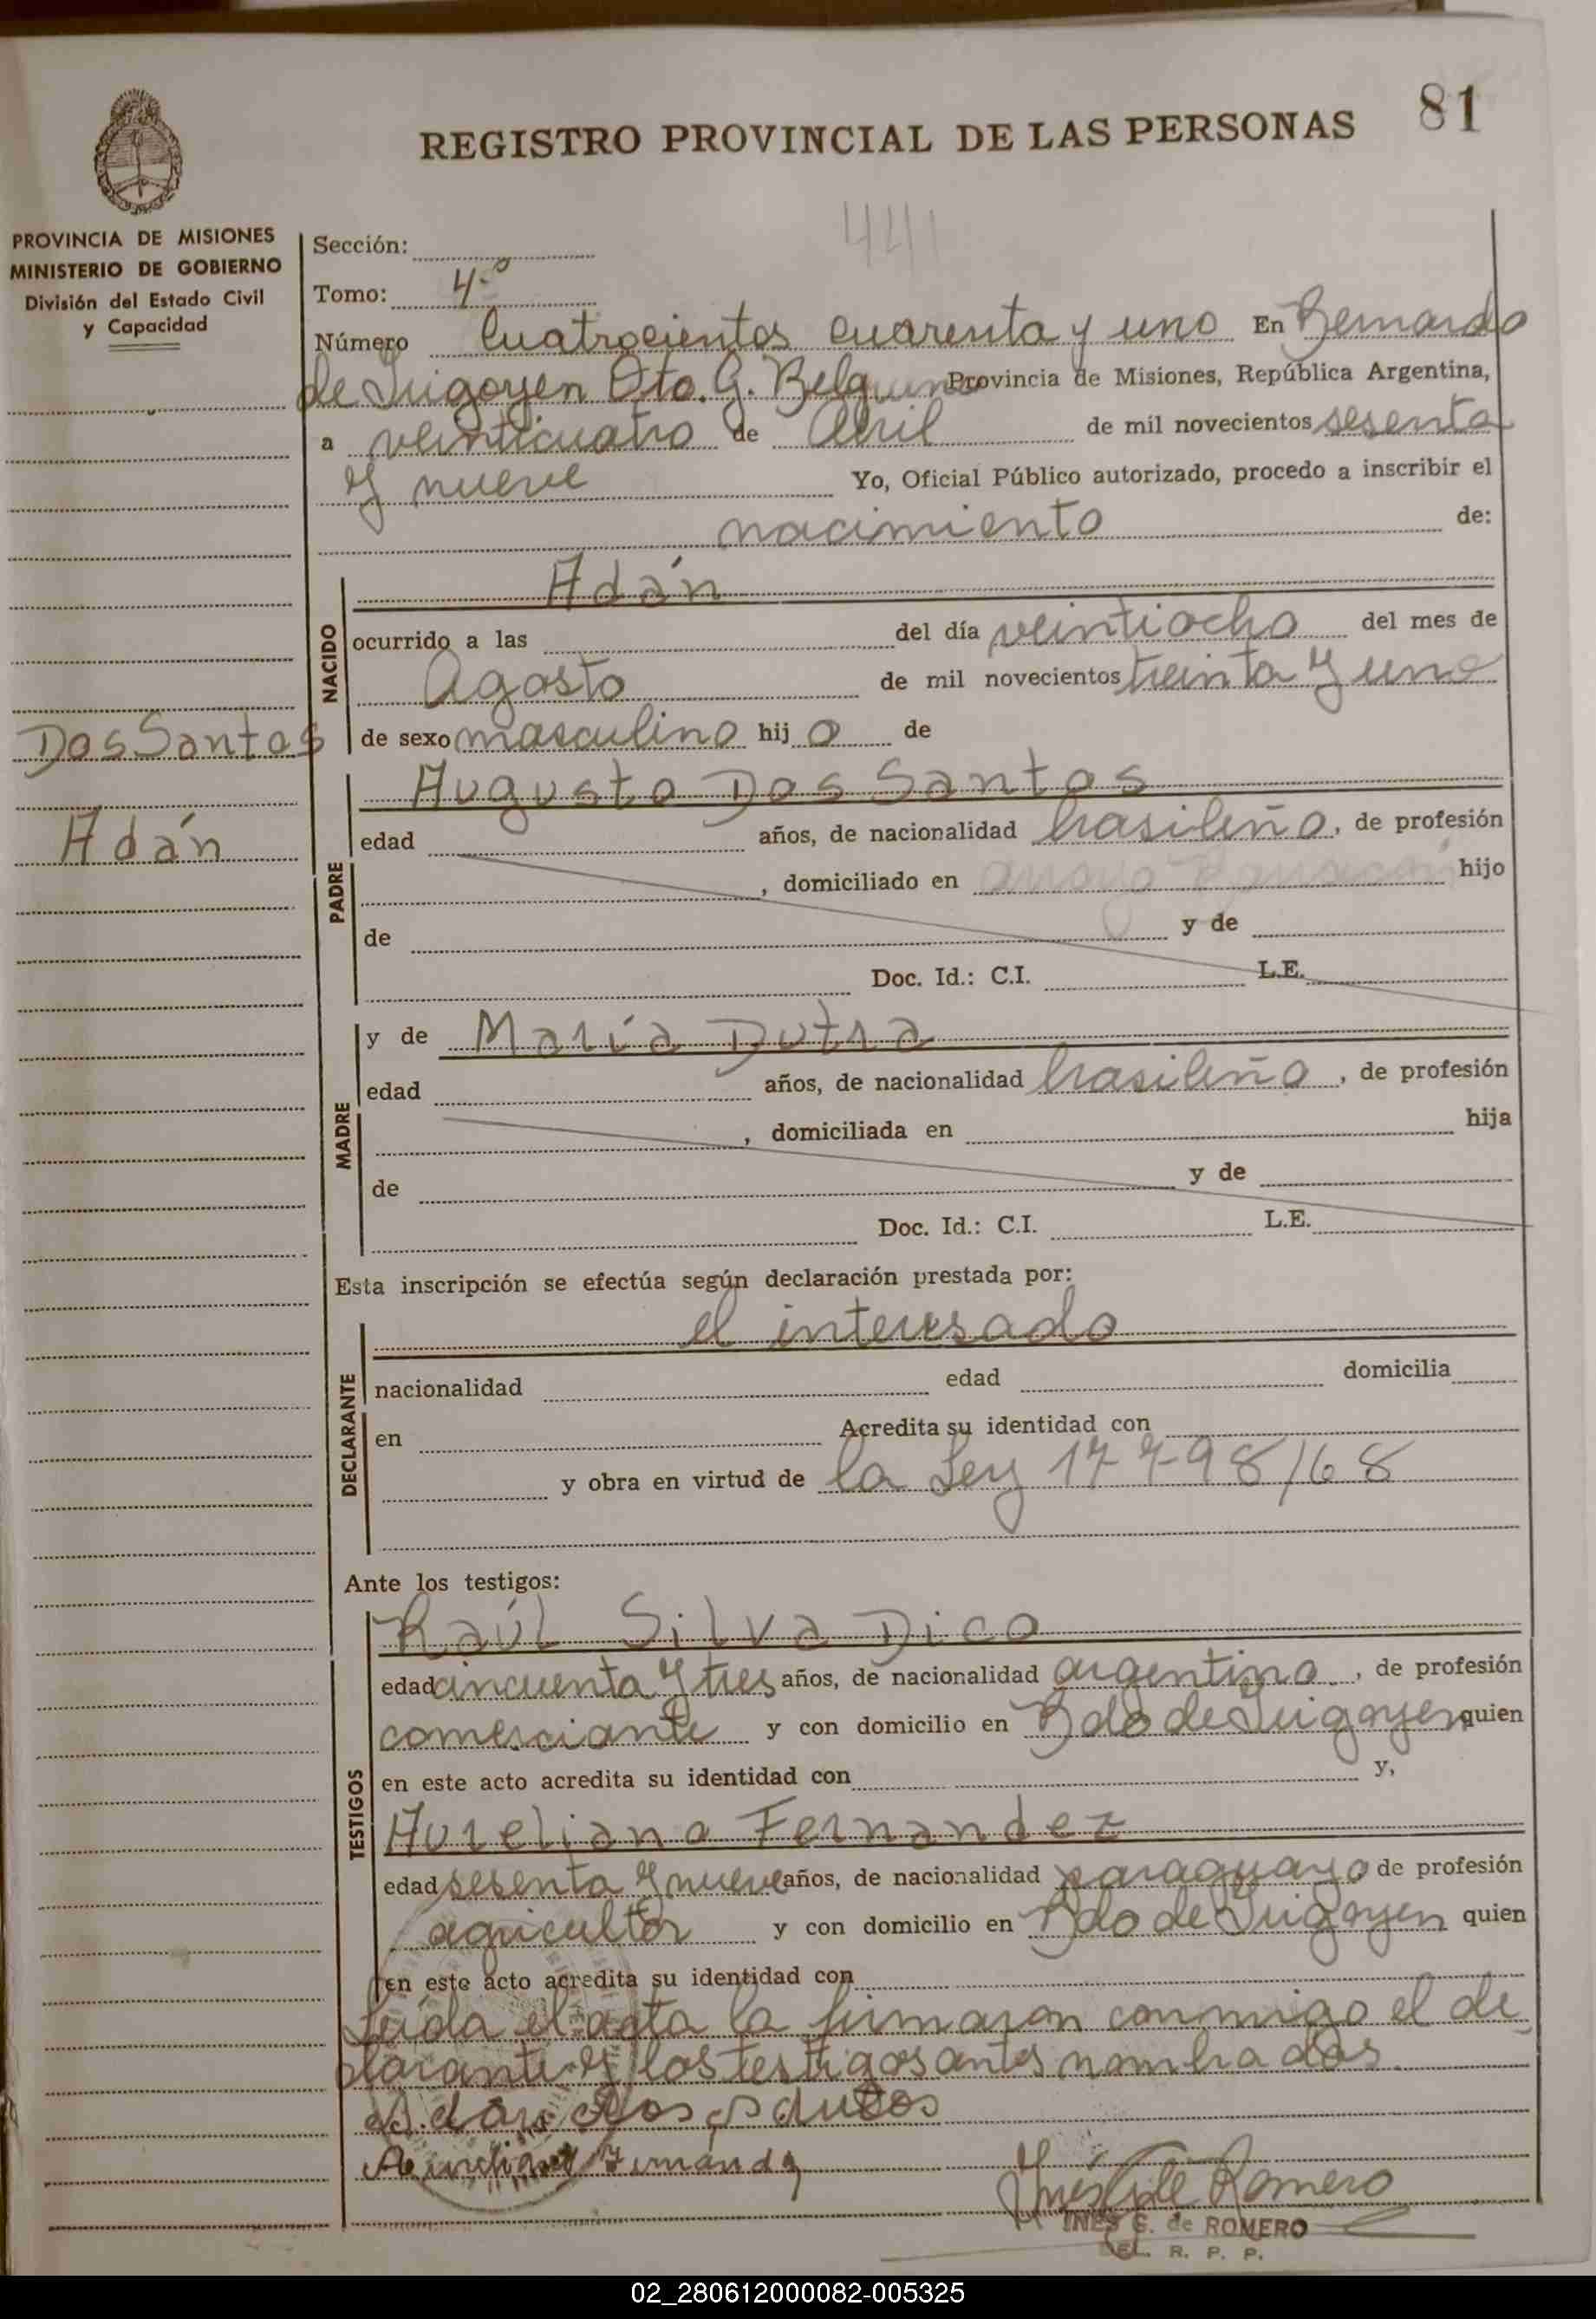 81
REGISTRO PROVINCIAL DE LAS PERSONAS
441
PROVINCIA DE MISIONES
MINISTERIO DE GOBIERNO
División del Estado Civil
y Capacidad
Sección:
Tomo: 4º
Número Cuatrocientos cuarenta y uno En Bernardo
de Irigoyen Dto. G. Belgrano Provincia de Misiones, República Argentina,
a veinticuatro de Abril de mil novecientos sesenta
y nueve Yo, Oficial Público autorizado, procedo a inscribir el
nacimiento de:
Dos Santos
Adán
NACIDO
Adán
ocurrido a las del día veintiocho del mes de
Agosto de mil novecientos treinta y uno
de sexo masculino hij o de
PADRE
Augusto Dos Santos
edad años, de nacionalidad brasileño, de profesión
, domiciliado en arroyo hijo
de y de
Doc. Id.: C.I. L.E.
MADRE
y de María Dutra
edad años, de nacionalidad brasileño, de profesión
, domiciliada en hija
de y de
Doc. Id.: C.I. L.E.
Esta inscripción se efectúa según declaración prestada por:
DECLARANTE
el interesado
nacionalidad edad domicilia
en Acredita su identidad con
y obra en virtud de la Ley 17798/68
Ante los testigos:
TESTIGOS
Raúl Silva Dico
edad cincuenta y tres años, de nacionalidad argentino, de profesión
comerciante y con domicilio en Bdo de Irigoyen quien
en este acto acredita su identidad con y,
Aureliano Fernandez
edad sesenta y nueve años, de nacionalidad paraguayo de profesión
agricultor y con domicilio en Bdo de Irigoyen quien
en este acto acredita su identidad con
Leída el acta la firmaron conmigo el de
clarante y los testigos antes nombrados
INES G. de ROMERO
R. P. P.
02_280612000082-005325